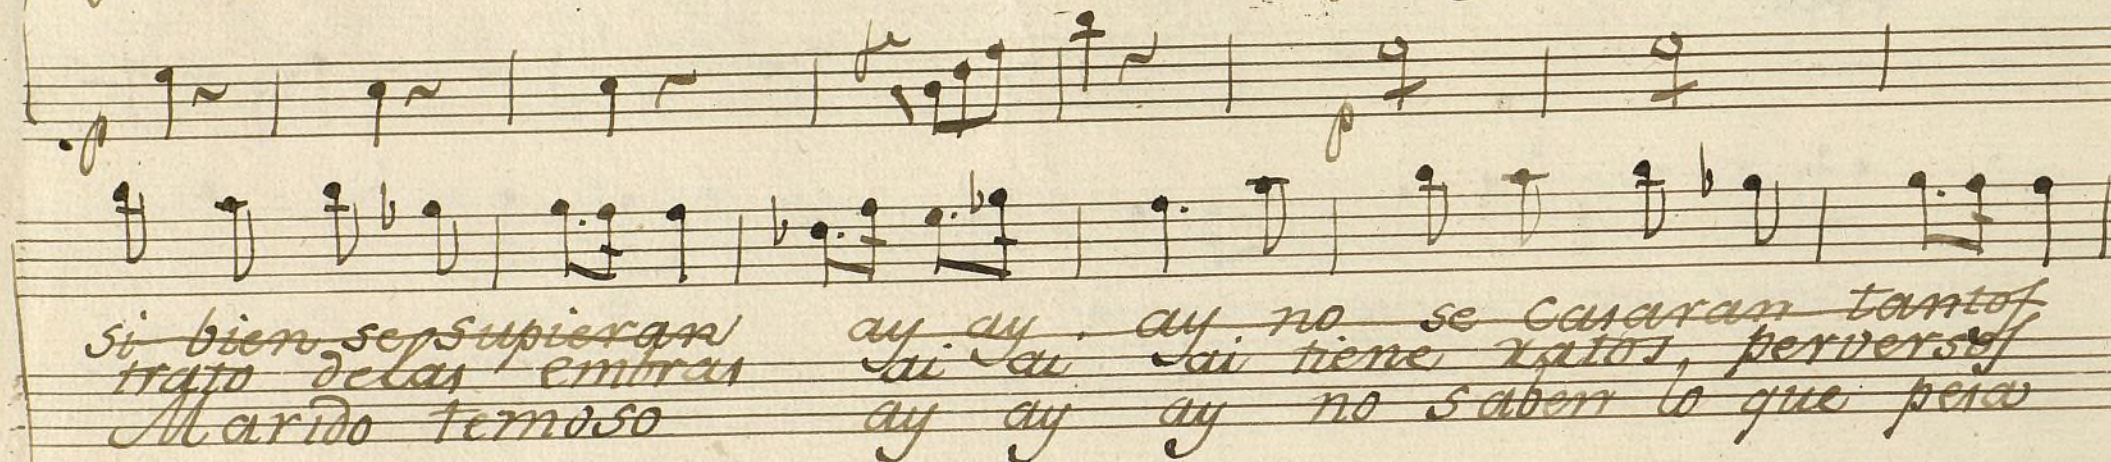 p
p
si bien se supieran ay ay ay no se casaran tantos
trato delas embras ai ai ai tiene ratos perversos
Marido temoso ay ay ay no saben lo que pesa